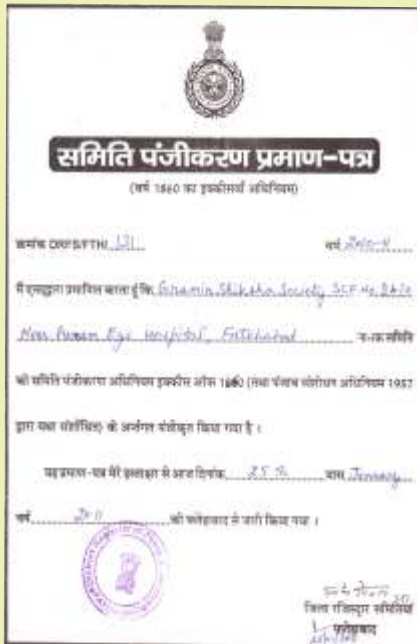 समिति पंजीकरण प्रमाण-पत्र
(वर्ष 1860 का इक्कीसवाँ अधिनियम)
क्रमांक DRFS/FTH/ 131 वर्ष 2010-11
मैं एतद्द्वारा प्रमाणित करता हूँ कि Gramin Shiksha Society SCF No.
Near Punam Eye Hospital, Fatehabad समिति
को समिति पंजीकरण अधिनियम इक्कीस ऑफ 1860 (तथा पंजाब संशोधन अधिनियम 1957
द्वारा यथा संशोधित) के अर्न्तगत पंजीकृत किया गया है ।
यह प्रमाण-पत्र मेरे हस्ताक्षर से आज दिनांक 25 th मास January
वर्ष 2011 को फतेहाबाद से जारी किया गया ।
जिला रजिस्ट्रार समितियां
फतेहाबाद